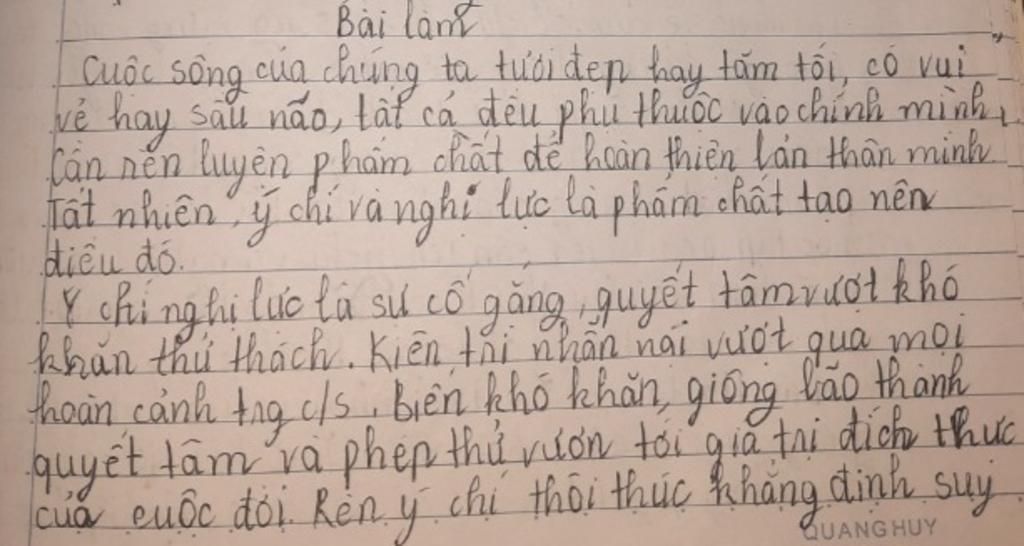 Bài làm
Cuộc sống của chúng ta tươi đẹp hay tăm tối, có vui
vẻ hay sầu não, tất cả đều phụ thuộc vào chính mình,
Cần rèn luyện phẩm chất để hoàn thiện bản thân mình
Tất nhiên, ý chí và nghị lực là phẩm chất tạo nên
điều đó.
Ý chí nghị lực là sự cố gắng, quyết tâm vượt khó
khăn thử thách. Kiên trì nhẫn nại vượt qua mọi
hoàn cảnh trg c/s, biến khó khăn, giông bão thành
quyết tâm và phép thử vươn tới giá trị đích thực
của cuộc đời. Rèn ý chí thôi thúc khẳng định suy
QUANG HUY